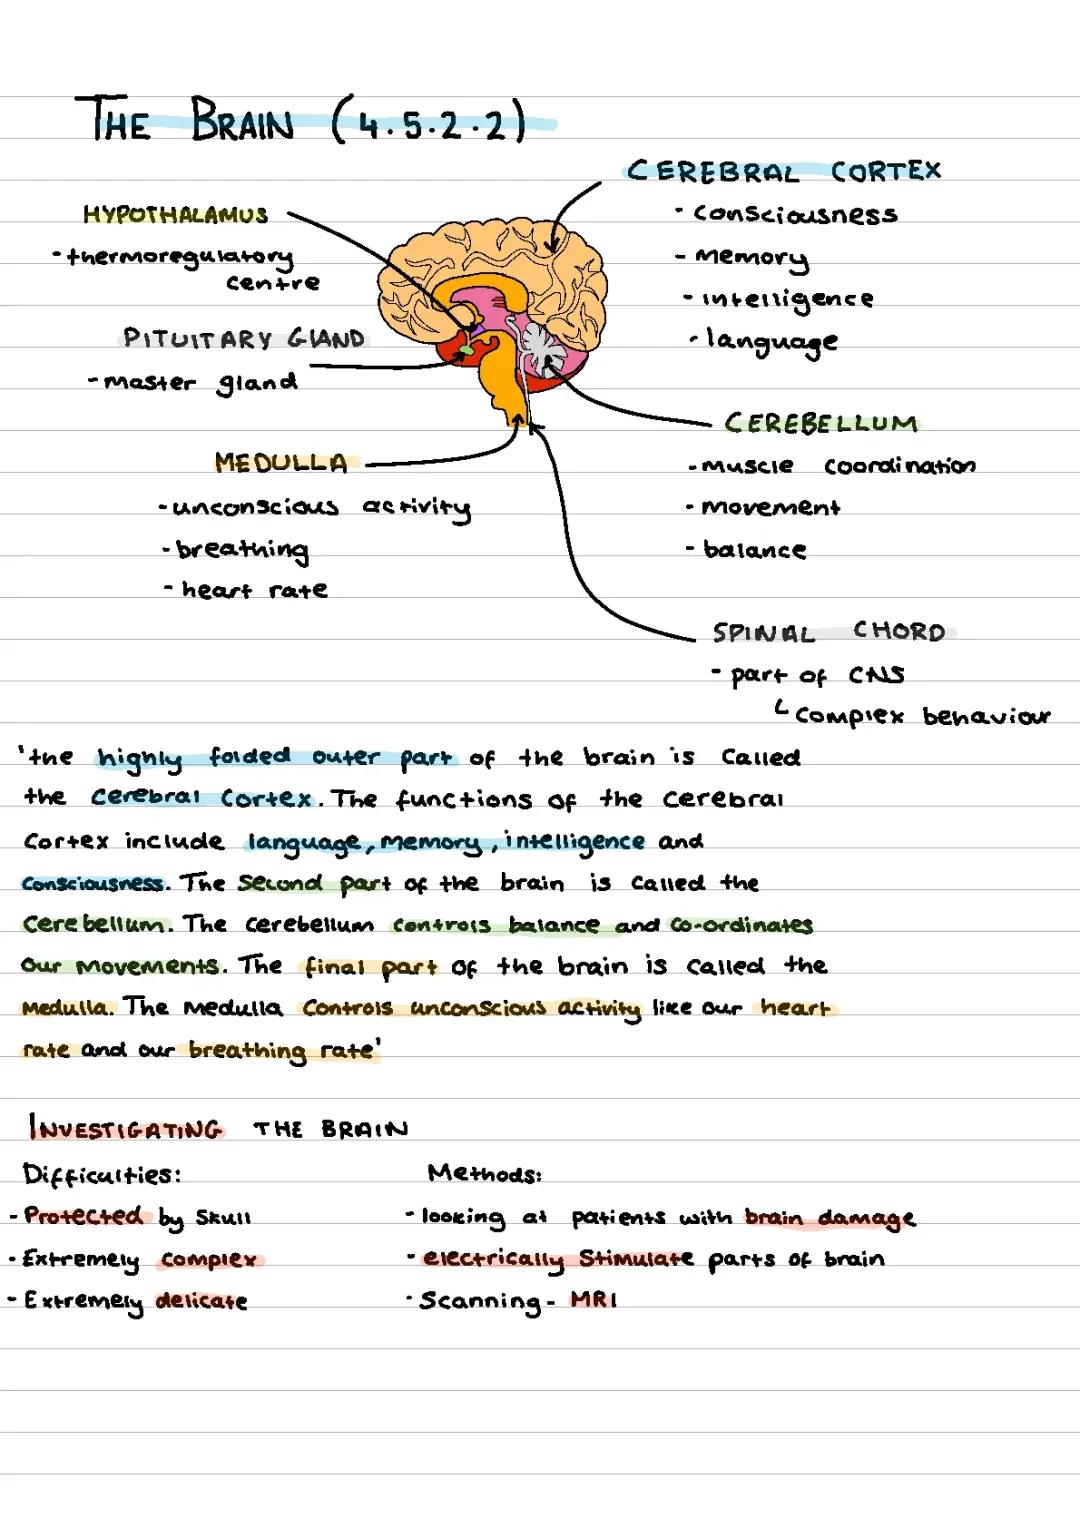 THE BRAIN (4.5.2.2)
CEREBRAL CORTEX
- consciousness
- memory
- intelligence
- language
HYPOTHALAMUS
- thermoregulatory
centre
PITUITARY GLAND
- master gland
CEREBELLUM
- muscle coordination
- movement
- balance
MEDULLA
- unconscious activity
- breathing
- heart rate
SPINAL CHORD
- part of CNS
└ complex behaviour
'the highly folded outer part of the brain is called
the cerebral cortex. The functions of the cerebral
cortex include language, memory, intelligence and
consciousness. The second part of the brain is called the
cerebellum. The cerebellum controls balance and co-ordinates
our movements. The final part of the brain is called the
medulla. The medulla controls unconscious activity like our heart
rate and our breathing rate'
INVESTIGATING THE BRAIN
Difficulties:
- Protected by skull
- Extremely complex
- Extremely delicate
Methods:
- looking at patients with brain damage
- electrically stimulate parts of brain
- Scanning - MRI